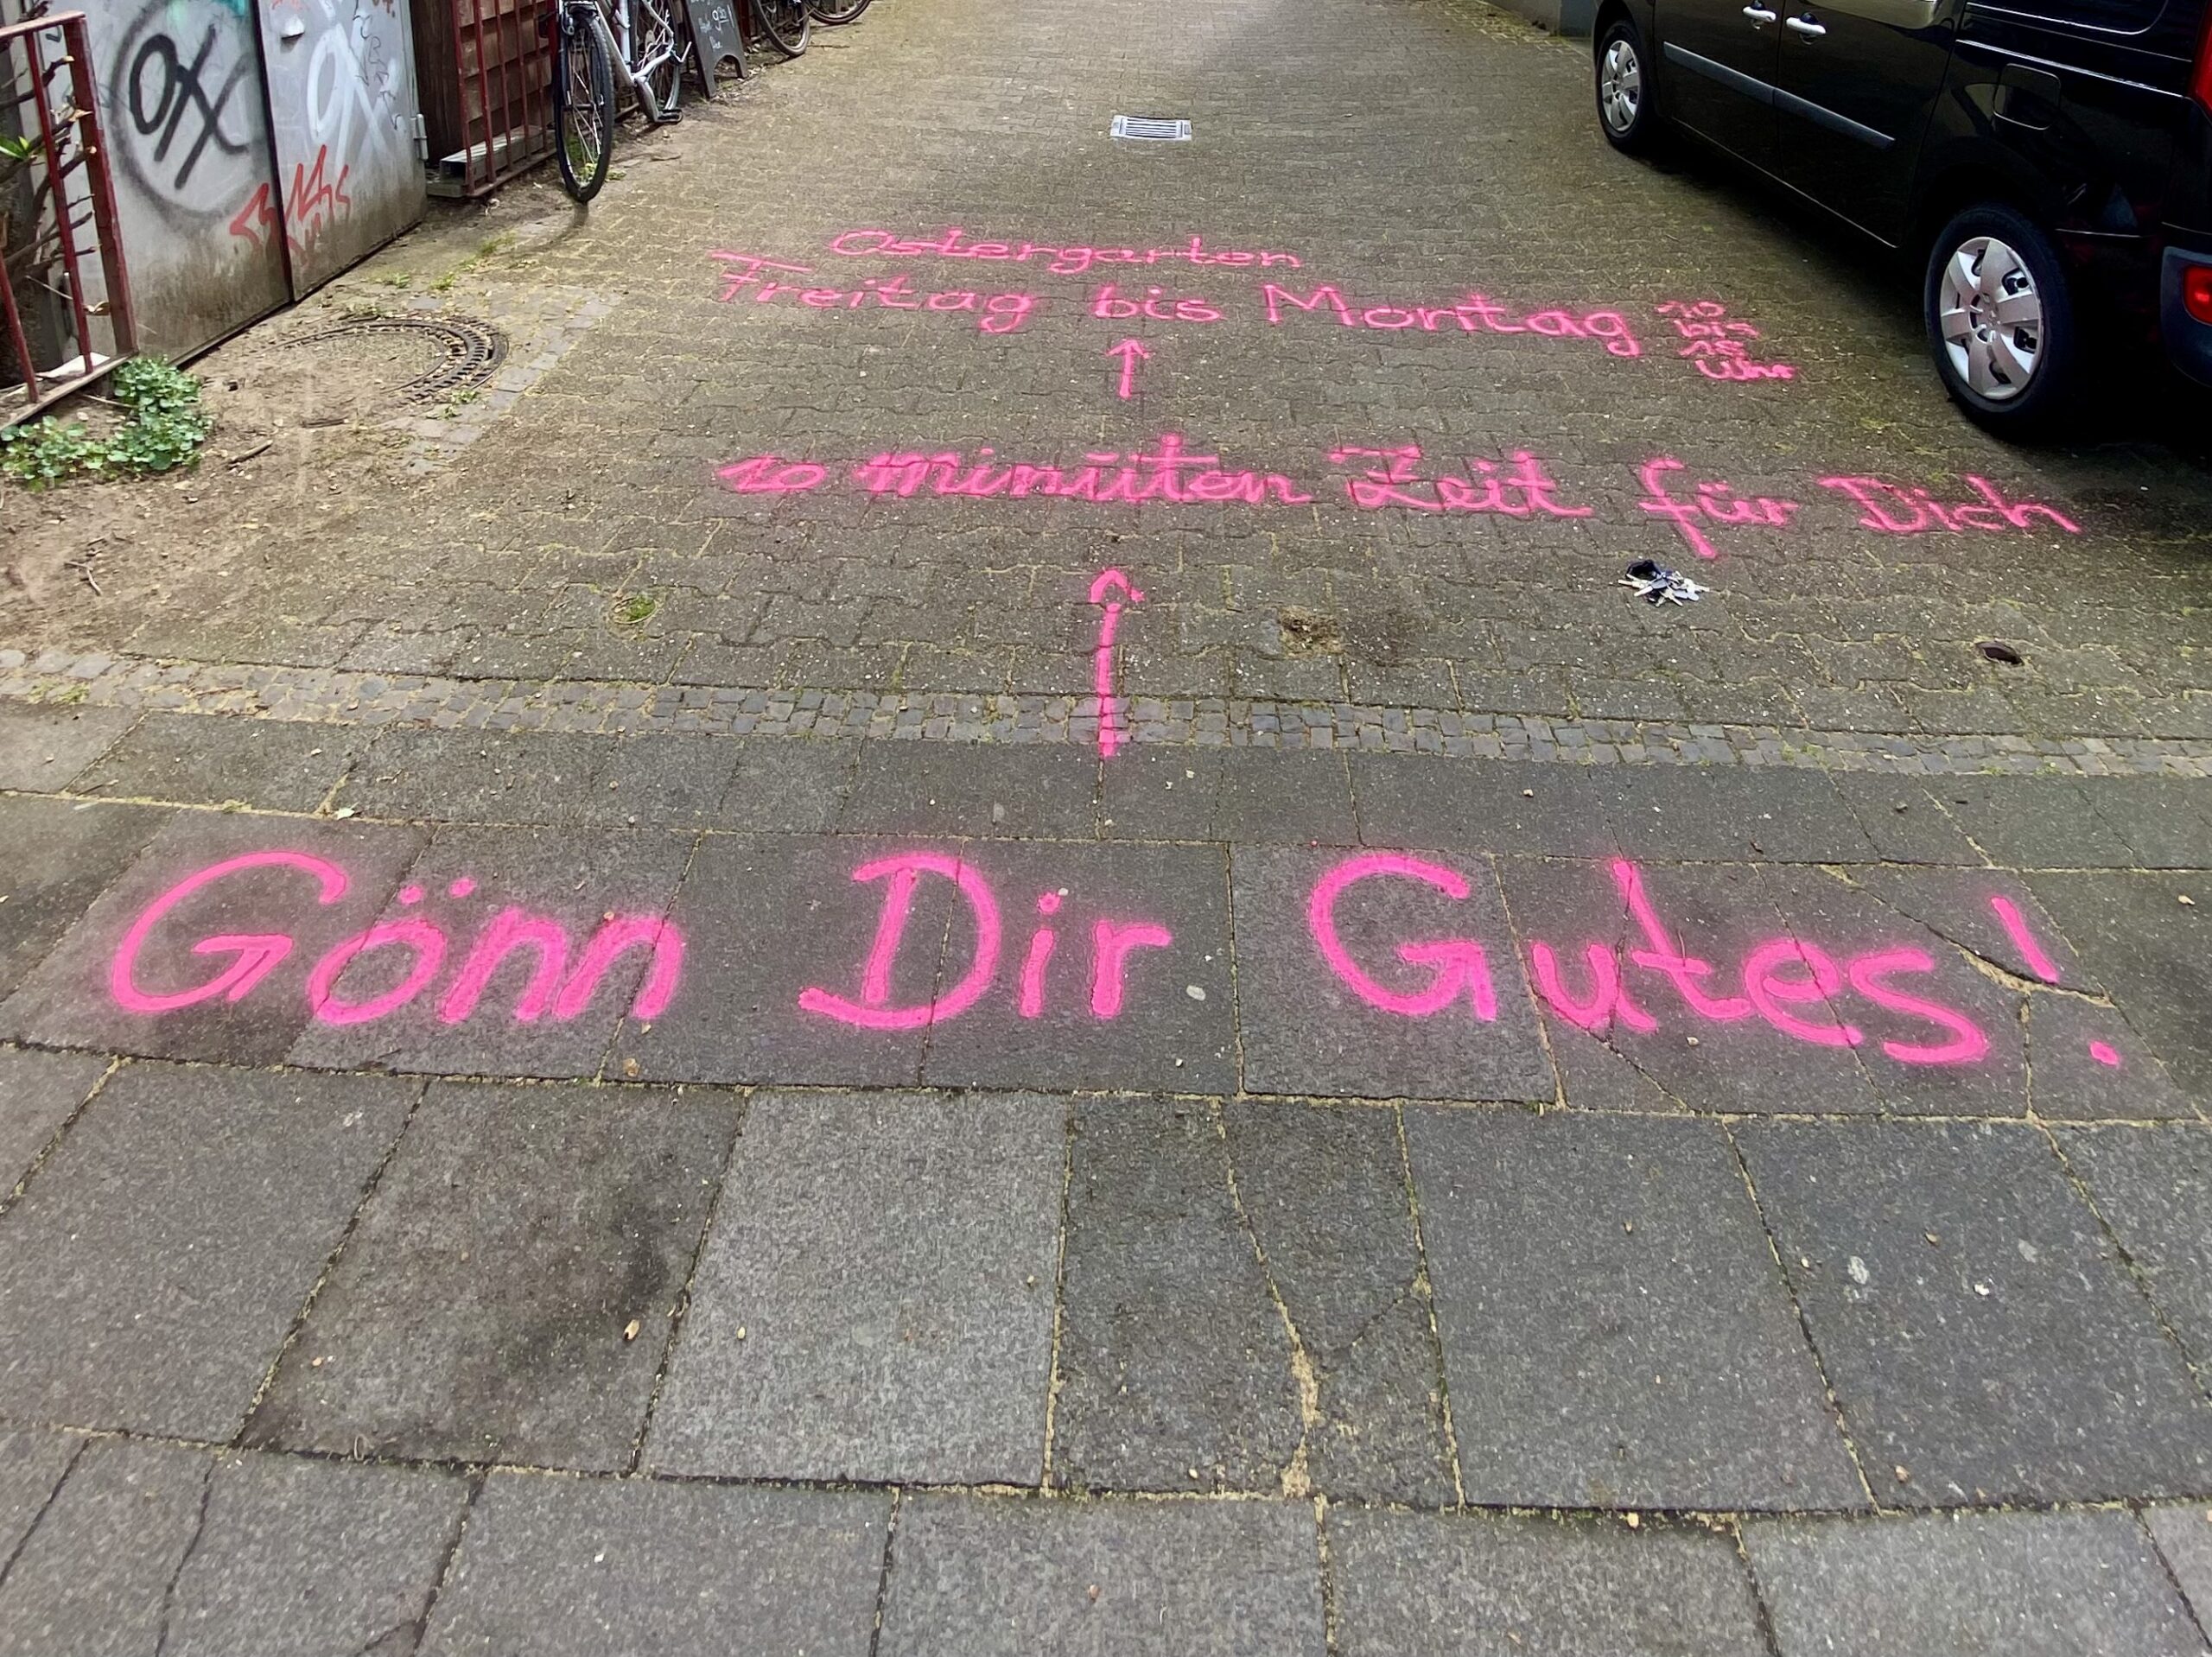 Ostergarten
Freitag bis Montag
10
bis
18
Uhr
10 minüten Zeit für Dich
Gönn Dir Gutes!